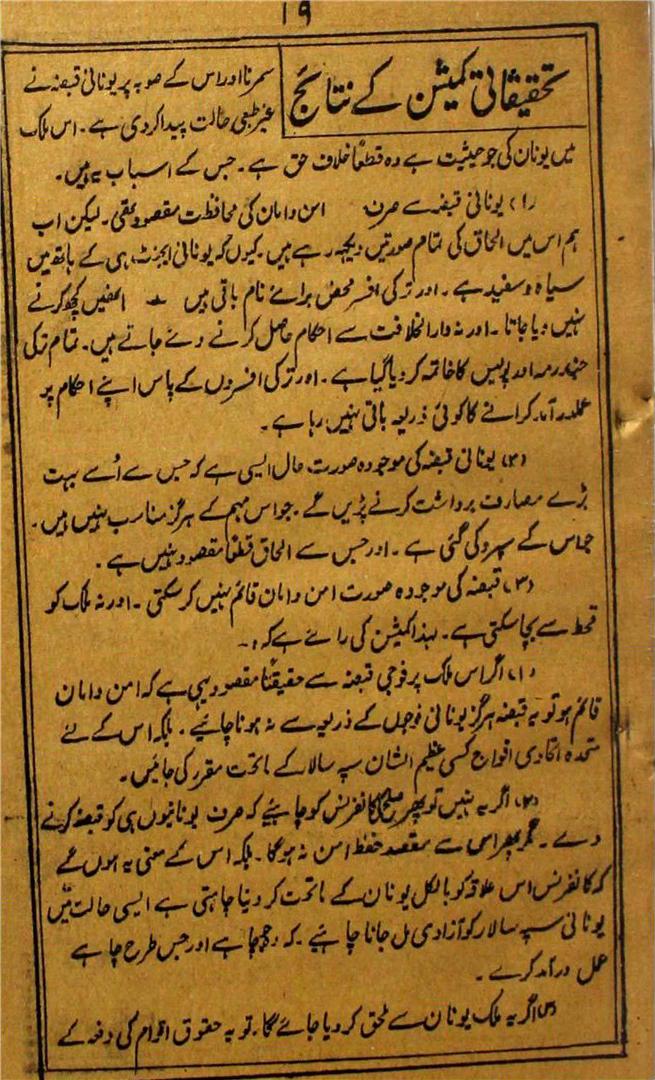 ۱۹
تحقیقاتی کمیشن کے نتائج
سمرنا اور اس کے صوبہ پر یونانی قبضہ نے
غیر طبعی حالت پیدا کردی ہے۔ اس ملک
میں یونان کی جو حیثیت ہے وہ قطعاً خلاف حق ہے۔ جس کے اسباب یہ ہیں۔
(۱) یونانی قبضہ سے صرف امن و امان کی محافظت مقصود تھی۔ لیکن اب
ہم اس میں الحاق کی تمام صورتیں دیکھ رہے ہیں۔ کیوں کہ یونانی ایجنٹ ہی کے ہاتھ میں
سیاہ و سفید ہے۔ اور ترکی افسر محض برائے نام باقی ہیں۔ انھیں کچھ کرنے
نہیں دیا جاتا۔ اور نہ دارالخلافت سے احکام حاصل کرنے دئے جاتے ہیں۔ تمام ترکی
جندرمہ اور پولیس کا خاتمہ کر دیا گیا ہے۔ اور ترکی افسروں کے پاس اپنے احکام پر
عملدرآمد کرانے کا کوئی ذریعہ باقی نہیں رہا ہے۔
(۲) یونانی قبضہ کی موجودہ صورت حال ایسی ہے کہ جس سے اُسے بہت
بڑے مصارف برداشت کرنے پڑیں گے۔ جو اس مہم کے ہرگز مناسب نہیں ہیں۔
جو اس کے سپرد کی گئی ہے۔ اور جس سے الحاق قطعاً مقصود نہیں ہے۔
(۳) قبضہ کی موجودہ صورت امن و امان قائم نہیں کرسکتی۔ اور نہ ملک کو
قحط سے بچا سکتی ہے۔ لہذا کمیشن کی رائے ہے کہ :۔
(۱) اگر اس ملک پر فوجی قبضہ سے حقیقتاً مقصود یہی ہے کہ امن و امان
قائم ہو تو یہ قبضہ ہرگز یونانی فوجوں کے ذریعہ سے نہ ہونا چاہئیے۔ بلکہ اس کے لئے
متحدہ اتحادی افواج کسی عظیم الشان سپہ سالار کے ماتحت مقرر کی جائیں۔
(۲) اگر یہ نہیں تو پھر صلح کانفرنس کو چاہئیے کہ صرف یونانیوں ہی کو قبضہ کرنے
دے۔ مگر پھر اس سے مقصد حفظ امن نہ ہوگا۔ بلکہ اس کے معنی یہ ہوں گے
کہ کانفرنس اس علاقہ کو بالکل یونان کے ماتحت کر دینا چاہتی ہے ایسی حالت میں
یونانی سپہ سالار کو آزادی مل جانا چاہئیے۔ کہ وہ جو چاہے اور جس طرح چاہے
عمل درآمد کرے۔
(۳) اگر یہ ملک یونان سے ملحق کر دیا جائے گا۔ تو یہ حقوق اقوام کی دفعہ کے